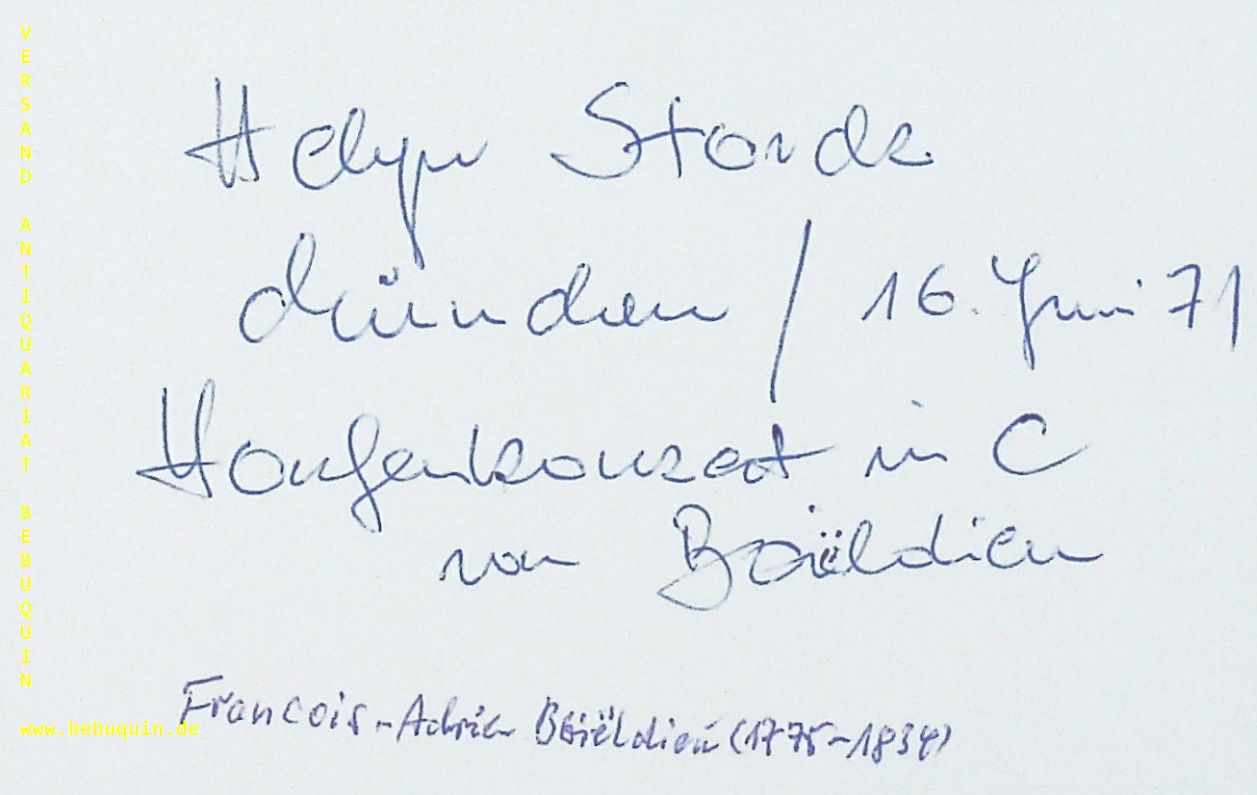 Helga Storck
München / 16. Juni 71
Harfenkonzert in C
von Boiëldieu
Francois-Adrien Boiëldieu (1775-1834)
VERSAND ANTIQUARIAT BEBUQUIN
www.bebuquin.de